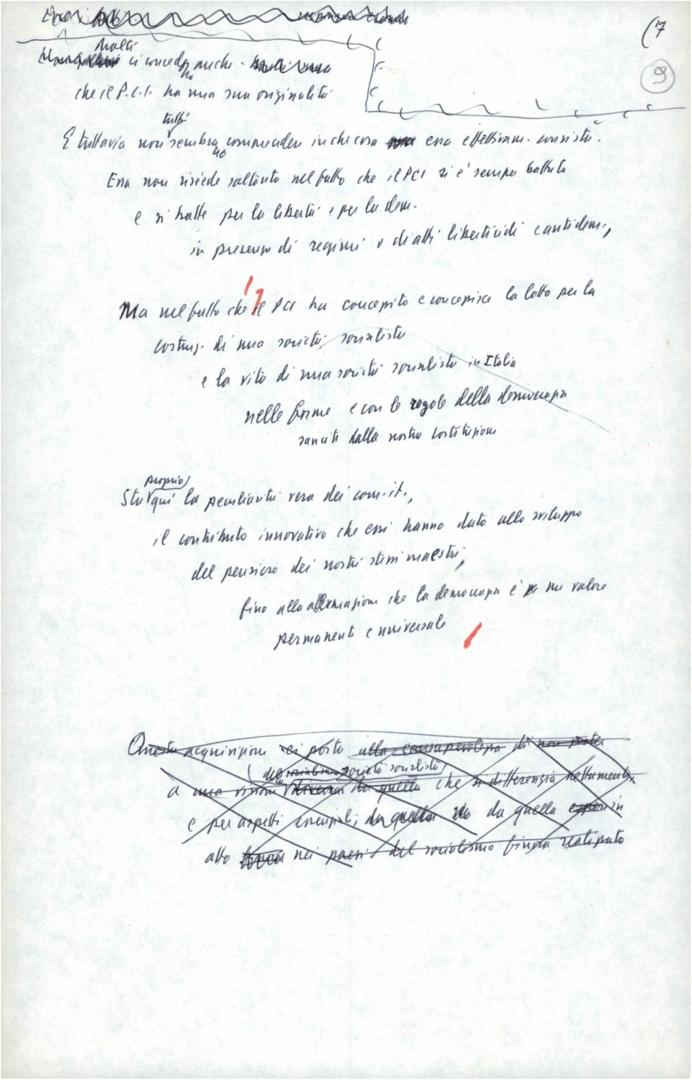 (7
9
Molti
ci concedono anche
che il P.C.I. ha una sua originalità
tutti
E tuttavia non sembrano comprendere in che cosa essa effettivam. consista.
Essa non risiede soltanto nel fatto che il PCI si è sempre battuto
e si batte per la libertà e per la dem.
in presenza di regimi o di atti liberticidi e antidem.,
Ma nel fatto che il PCI ha concepito e concepisce la lotta per la
costruz. di una società socialista
e la vita di una società socialista in Italia
nelle forme e con le regole della democrazia
sanciti dalla nostra Costituzione
proprio
Sta qui la peculiarità vera dei com. it.,
il contributo innovativo che essi hanno dato allo sviluppo
del pensiero dei nostri stessi maestri,
fino alla affermazione che la democrazia è un valore
permanente e universale
Questa acquisizione ci porta alla consapevolezza di
della società socialista
a una visione da quella che si differenzia nettamente
e per aspetti essenziali, da quella da quella in
atto nei paesi del socialismo finora realizzato